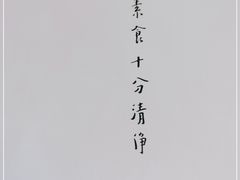 素食十分清净